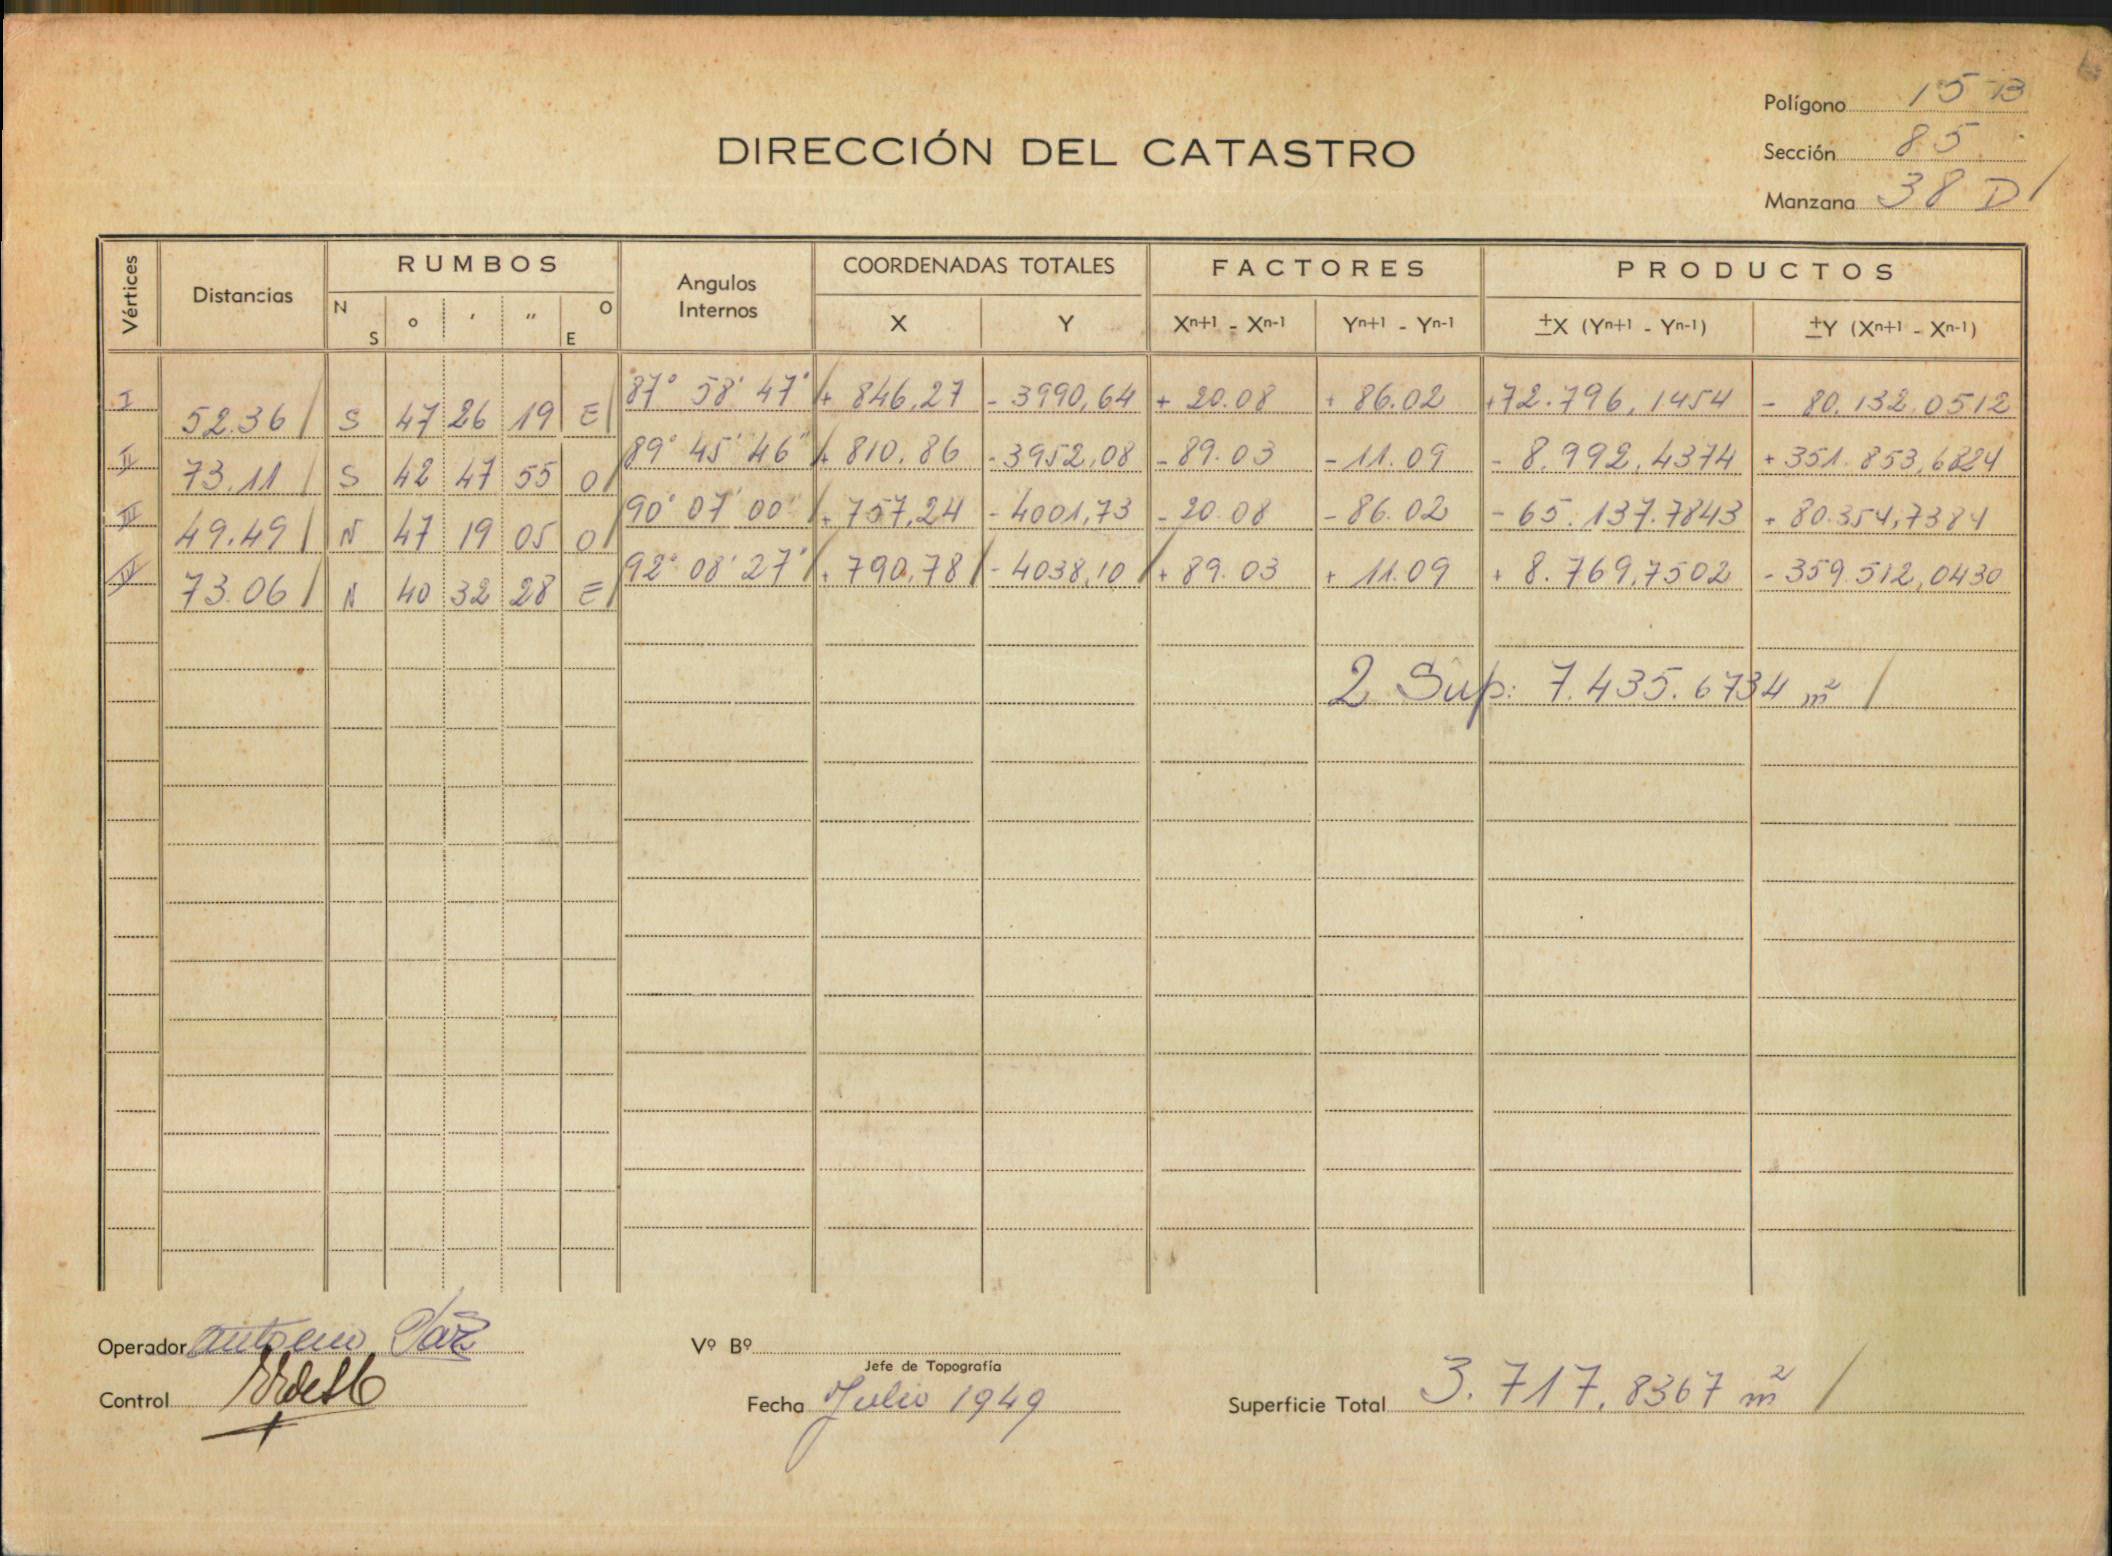 Polígono 15 B
DIRECCIÓN DEL CATASTRO
Sección 85
Manzana 38 D
Vértices Distancias RUMBOS Angulos Internos COORDENADAS TOTALES FACTORES PRODUCTOS
N S o ′ ″ O E X Y Xn+1 - Xn-1 Yn+1 - Yn-1 ±X (Yn+1 - Yn-1) ±Y (Xn+1 - Xn-1)
I 87° 58' 47" + 846,27 - 3990,64 + 20.08 + 86.02 +72.796,1454 - 80.132.0512
52.36 S 47 26 19 E
II 89° 45' 46" + 810,86 - 3952,08 - 89.03 - 11.09 - 8.992,4374 + 351.853,6824
73.11 S 42 47 55 O
III 90° 07' 00" + 757,24 - 4001,73 - 20.08 - 86.02 - 65.137.7843 + 80.354,7384
49.49 N 47 19 05 O
IV 92° 08' 27" + 790,78 - 4038,10 + 89.03 + 11.09 + 8.769,7502 - 359.512,0430
73.06 N 40 32 28 E
2 Sup: 7.435.6734 m²
Operador Antonio
Vº Bº
Jefe de Topografía
Control
Fecha Julio 1949
Superficie Total 3.717,8367 m²